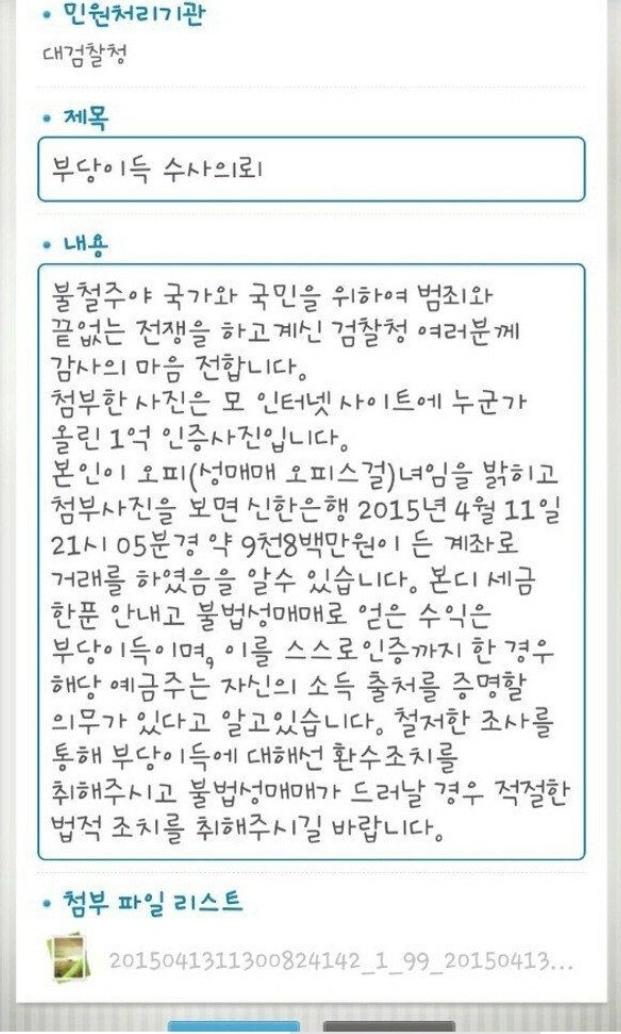 • 민원처리기관
대검찰청
• 제목
부당이득 수사의뢰
• 내용
불철주야 국가와 국민을 위하여 범죄와
끝없는 전쟁을 하고계신 검찰청 여러분께
감사의 마음 전합니다.
첨부한 사진은 모 인터넷 사이트에 누군가
올린 1억 인증사진입니다.
본인이 오피(성매매 오피스걸)녀임을 밝히고
첨부사진을 보면 신한은행 2015년 4월 11일
21시 05분경 약 9천8백만원이 든 계좌로
거래를 하였음을 알수 있습니다. 본디 세금
한푼 안내고 불법성매매로 얻은 수익은
부당이득이며, 이를 스스로인증까지 한 경우
해당 예금주는 자신의 소득 출처를 증명할
의무가 있다고 알고있습니다. 철저한 조사를
통해 부당이득에 대해선 환수조치를
취해주시고 불법성매매가 드러날 경우 적절한
법적 조치를 취해주시길 바랍니다.
• 첨부 파일 리스트
2015041311300824142_1_99_20150413...